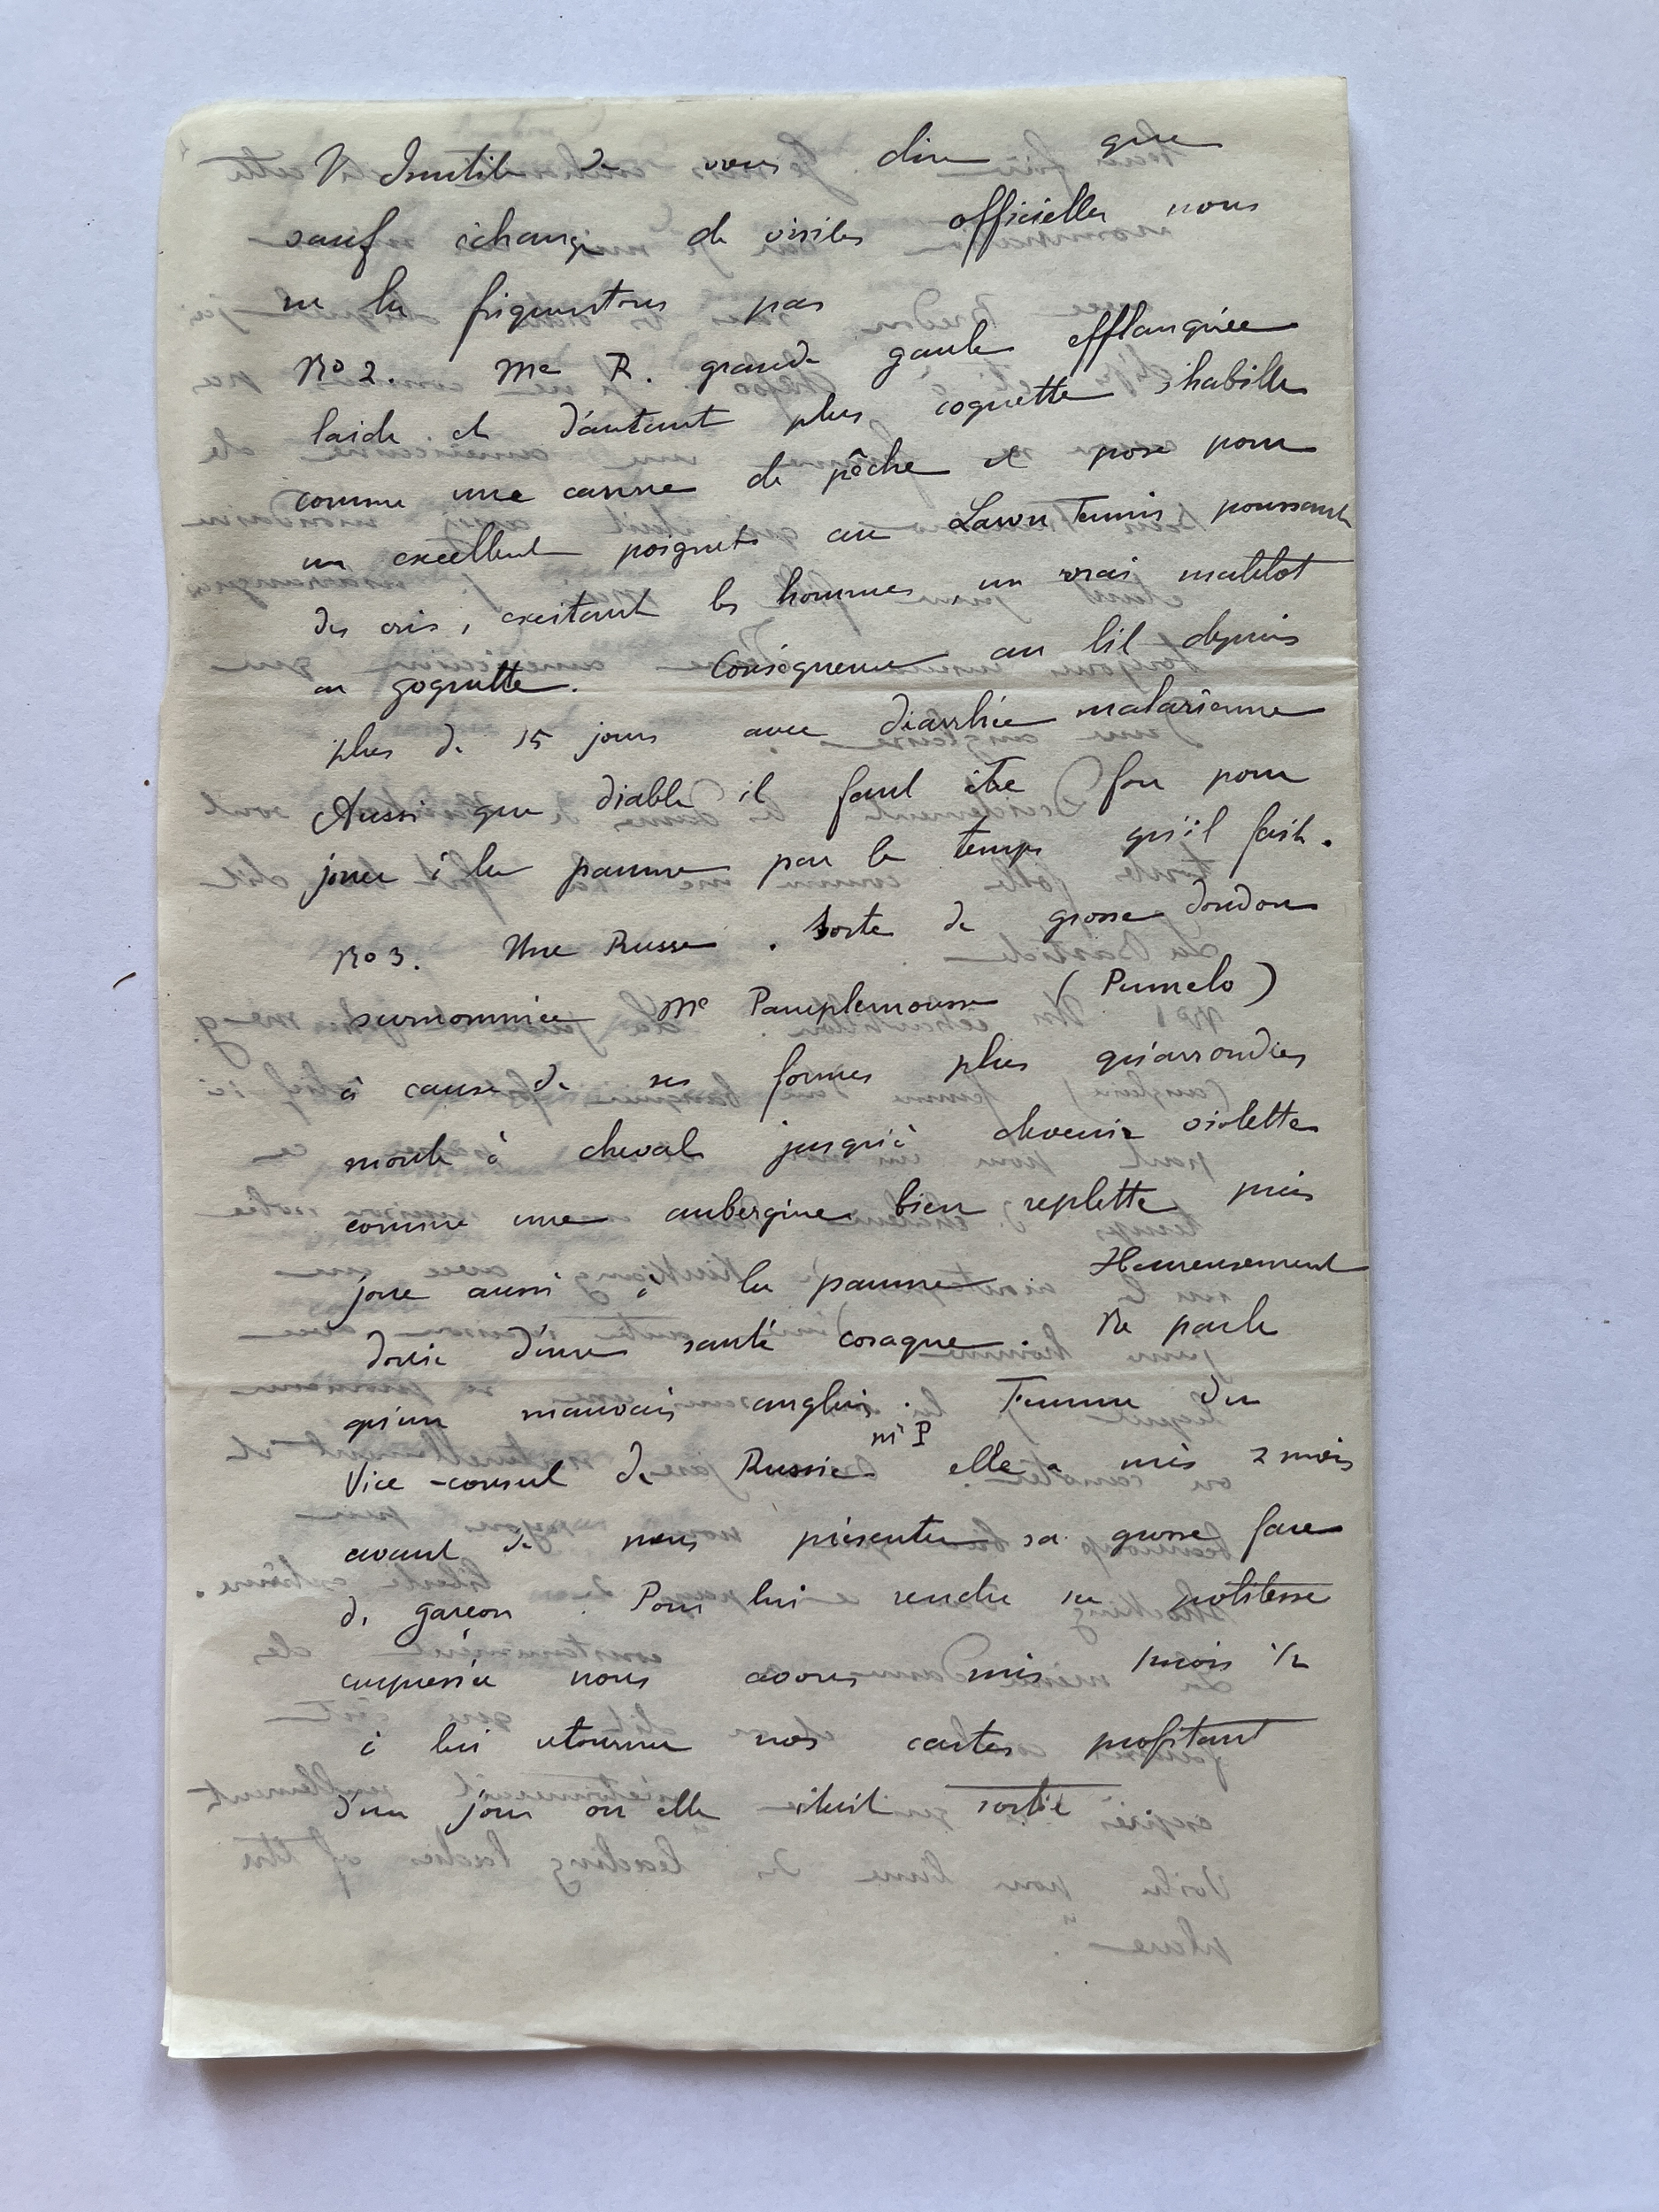 Inutile de vous dire que
sauf échange de visites officielles nous
ne la fréquentons pas
No 2. Me R. grande gaule efflanquée
laide et d'autant plus coquette s'habille
comme une canne de pêche et pose pour
un excellent poignet au Lawn Tennis poussant
des cris, excitant les hommes, un vrai matelot
en goguette. Conséquence au lit depuis
plus de 15 jours avec diarrhée malarienne
Aussi que diable il faut être fou pour
jouer à la paume par le temps qu'il fait.
No 3. Une Russe. Sorte de grosse dondon
surnommée Me Pamplemousse (Pumelo)
à cause de ses formes plus qu'arrondies
monte à cheval jusqu'à devenir violette
comme une aubergine bien replette puis
joue aussi à la paume Heureusement
douée d'une santé cosaque. Ne parle
qu'un mauvais anglais. Femme du
Vice-consul de Russie Me P elle a mis 2 mois
avant de nous présenter sa grosse face
de garçon. Pour lui rendre sa politesse
empressée nous avons mis 1 mois 1/2
à lui retourner nos cartes profitant
d'un jour où elle était sortie